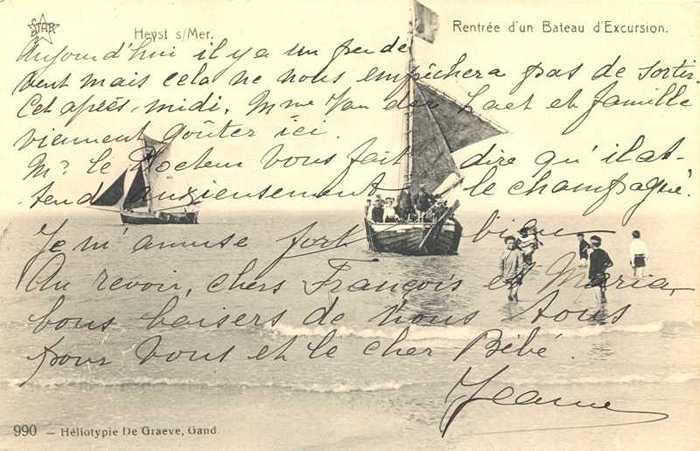 STAR
Heyst s/Mer.
Rentrée d'un Bateau d'Excursion.
Aujourd'hui il y a un peu de
vent mais cela ne nous empêchera pas de sortir.
Cet après-midi. Mme Van der Laet et famille
viennent goûter ici.
Mr. le Docteur vous fait dire qu'il at-
tend anxieusement le champagne
Je m'amuse fort bien
Au revoir, chers François et Maria,
bons baisers de nous tous
pour vous et le cher Bébé.
Jeanne
990 - Héliotypie De Graeve, Gand